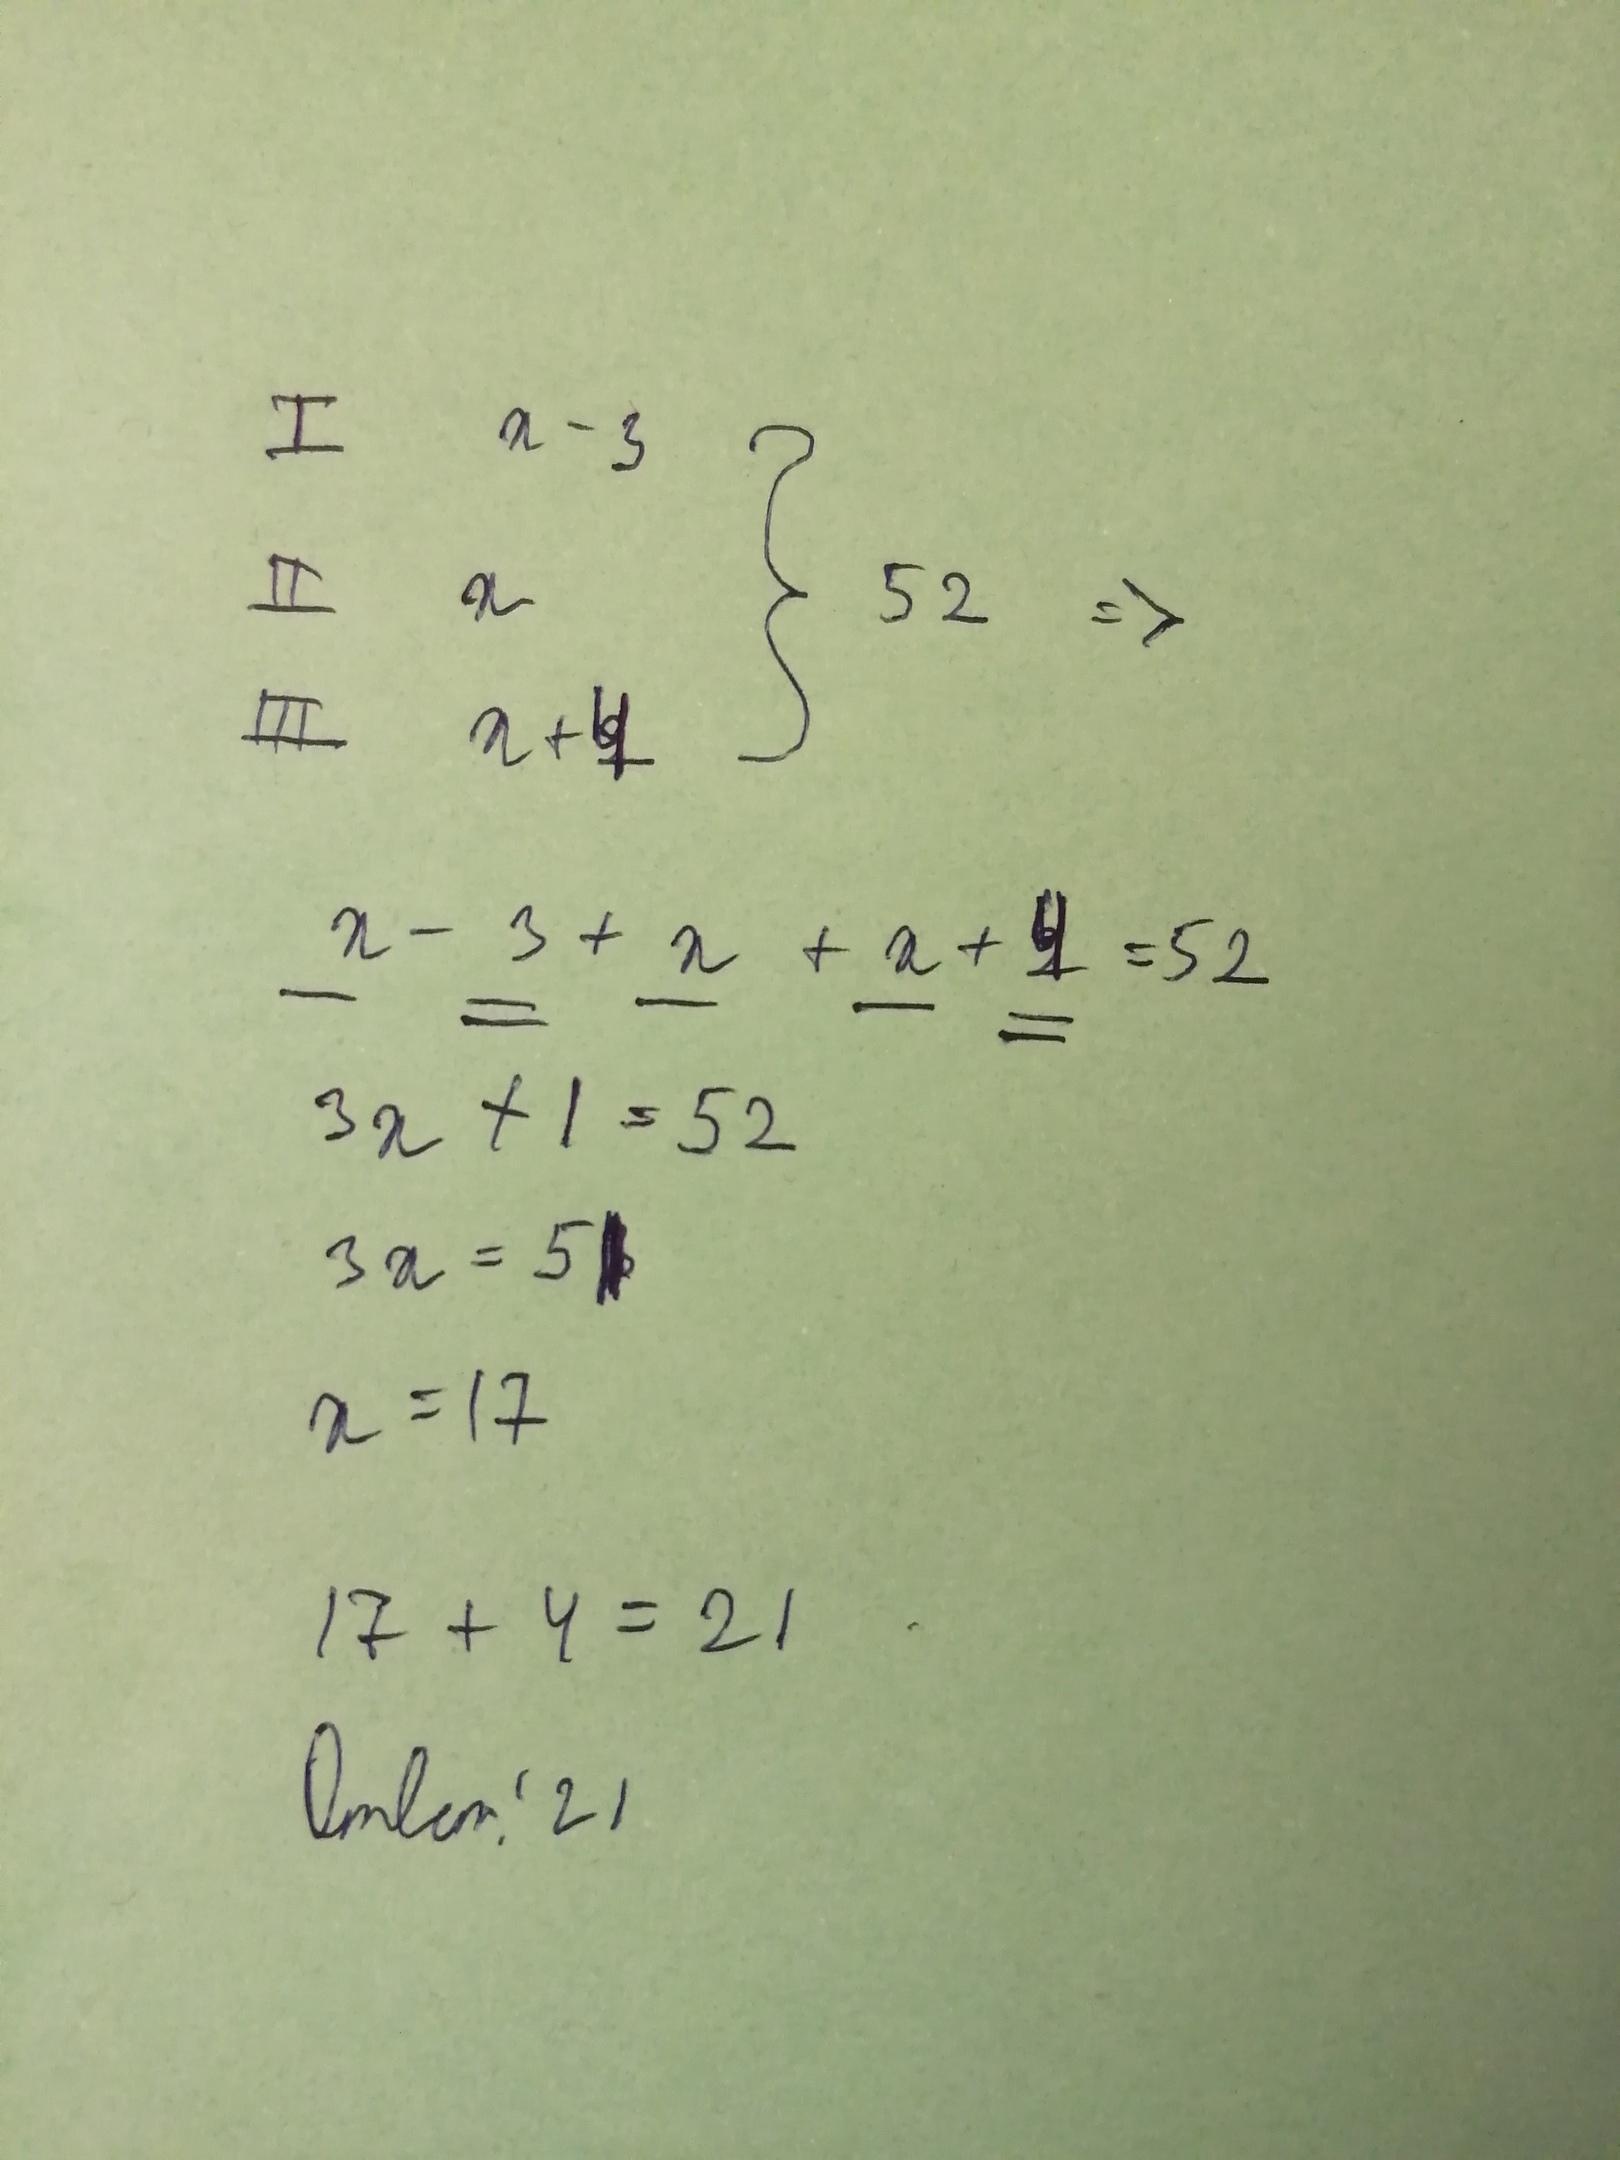 I x - 3
II x } 52 =>
III x + 4
x - 3 + x + x + 4 = 52
3x + 1 = 52
3x = 51
x = 17
17 + 4 = 21
Ответ: 21